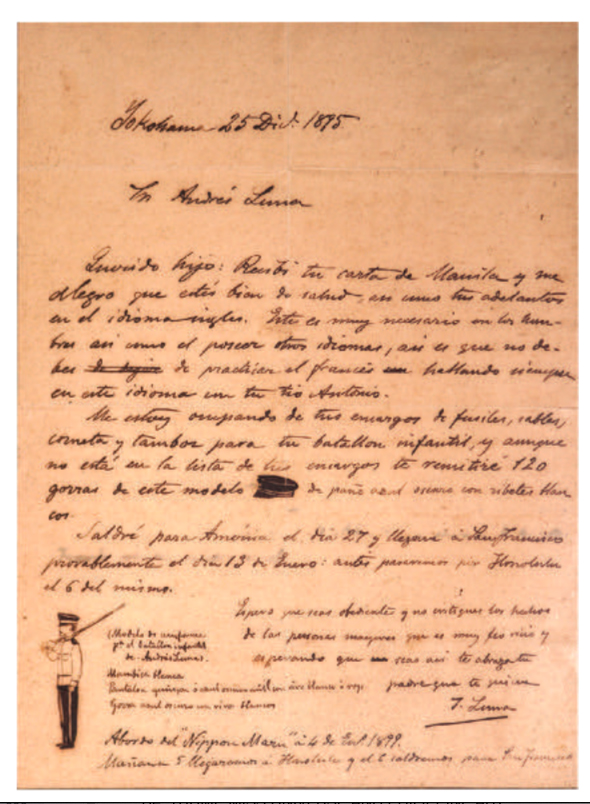 Yokohama 25 Dic. 1895
Sr. Andrés Luna
Querido hijo: Recibí tu carta de Manila y me
alegro que estés bien de salud, asi como tus adelantos
en el idioma ingles. Este es muy necesario en los hom-
bres asi como el poseer otros idiomas, asi es que no de-
bes de practicar el francés hablando siempre
en este idioma con tu tio Antonio.
Me estoy ocupando de tus encargos de fusiles, sables,
corneta y tambor para tu batallon infantil, y aunque
no está en la lista de tus encargos te remitiré 120
gorras de este modelo de paño azul oscuro con ribetes blan
cos.
Saldré para América el dia 27 y llegaré á San Francisco
provablemente el dia 13 de Enero: antes pasaremos por Honolulu
el 6 del mismo.
Espero que seas obediente y no critiques los hechos
de las personas mayores que es muy feo vicio y
esperando que seas asi te abraza tu
padre que te quiere
J. Luna
(Modelo de uniforme
pa. el batallon infantil
de Andrés Luna).
blanca
Pantalon ó azul con vivo blanco ó rojo
Gorra azul oscuro con vivo blanco
Abordo del "Nippon Maru" á 4 de En. 1899.
Mañana 5 llegaremos á Honolulu y el 6 saldremos para San Francisco